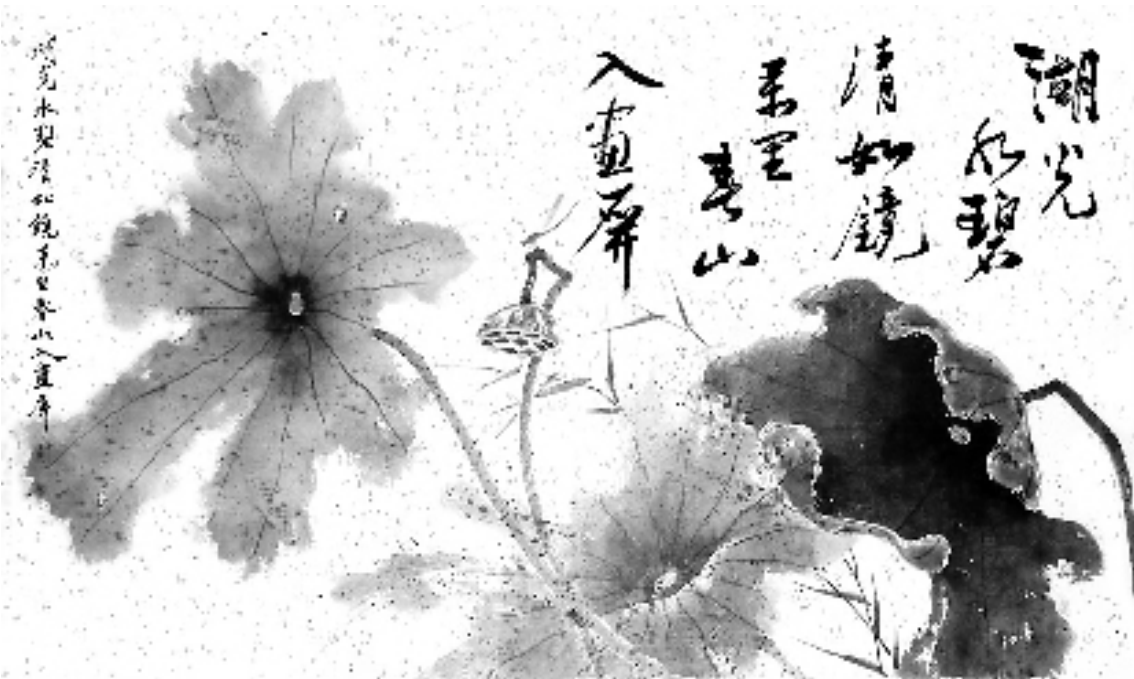 湖光
水碧
清如鏡
萬里
春山
入畫屏
湖光水碧清如鏡萬里春山入畫屏